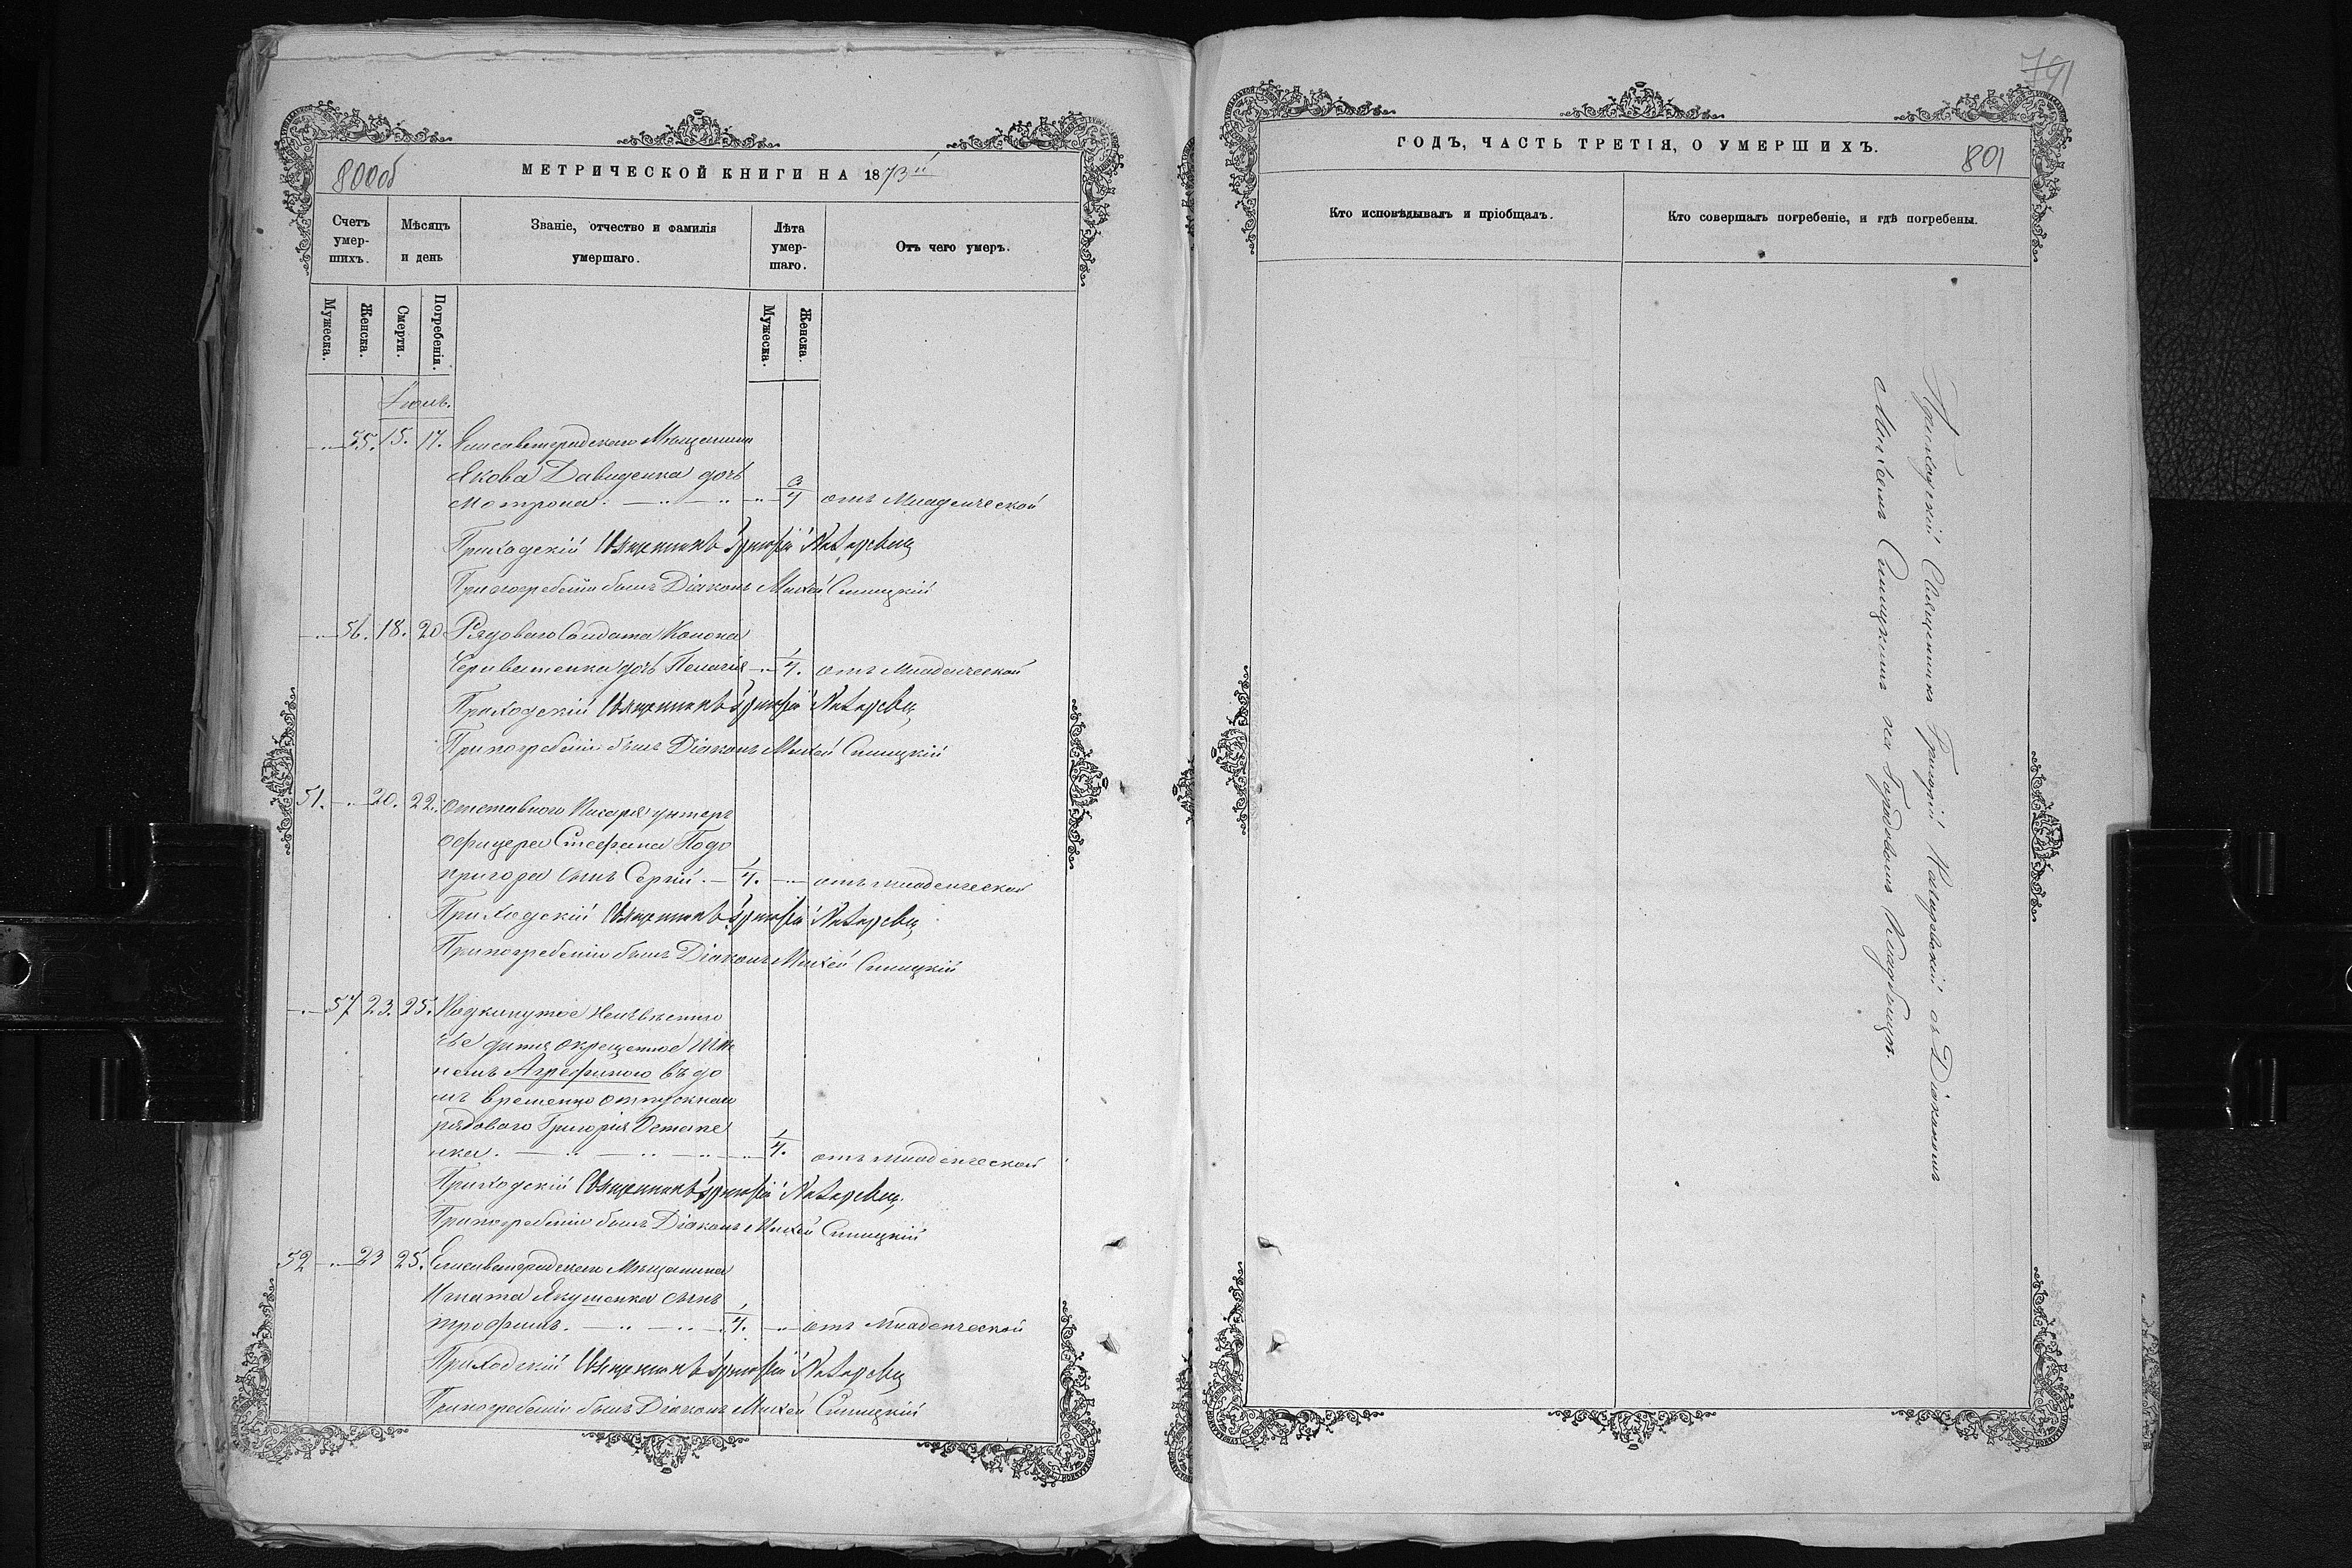 800об
МЕТРИЧЕСКОЙ КНИГИ НА 1873й
Счетъ умер-шихъ.
Мѣсяцъ и день
Званіе, отчество и фамилія умершаго.
Лѣта умер-шаго.
Отъ чего умеръ.
Мужеска.
Женска.
Смерти.
Погребенія.
Мужеска.
Женска.
Іюль.
-"- 55. 15. 17. Елисаветградскаго Мѣщанина
Якова Давиденка дочь
Мотрона. 3/4 отъ Младенческой
Приходскій Священникъ Григорій
При погребеніи былъ Діаконъ Михей Синицкій
-"- 56. 18. 20 Рядоваго Солдата Конона
дочь Пелагія -"- 1/4. отъ Младенческой
Приходскій Священникъ Григорій
При погребеніи былъ Діаконъ Михей Синицкій
51. -"- 20. 22. Отставного Писаря унтеръ
офицера Стефана Подо
пригора сынъ Сергій. 1/4. -"- отъ младенческой
Приходскій Священникъ Григорій
При погребеніи былъ Діаконъ Михей Синицкій
-"- 57 23. 25. Подкинутое Неизвѣстно
чье дитя окрещенное Име
немъ Агрефиною въ до
мѣ временно отпускнаго
рядоваго Григорія Остапе
нка. 1/4. отъ младенческой
Приходскій Священникъ Григорій
При погребеніи былъ Діаконъ Михей Синицкій
52 -"- 23 25. Елисаветградскаго Мѣщанина
Игната Якушенка сынъ
Трофимъ. 1/4. -"- отъ Младенческой
Приходскій Священникъ Григорій
При погребеніи былъ Діаконъ Михей Синицкій
791
ГОДЪ, ЧАСТЬ ТРЕТІЯ, О УМЕРШИХЪ.
801
Кто исповѣдывалъ и пріобщалъ.
Кто совершалъ погребеніе, и гдѣ погребены.
Приходскій Священникъ Григорій съ Діакономъ
Михеемъ Синицкимъ на Градовомъ Кладбищѣ.